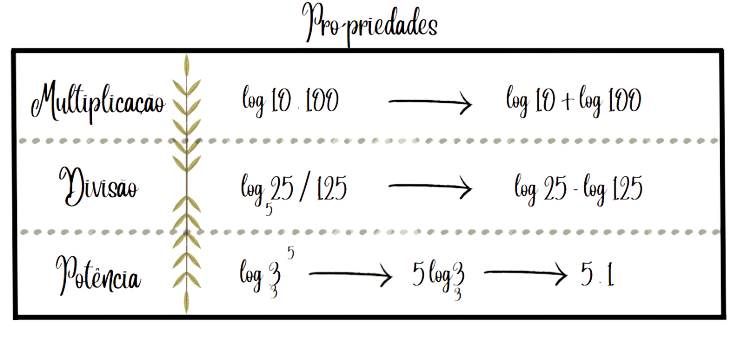 Propriedades
Multiplicação log 10 . 100 → log 10 + log 100
Divisão log₅ 25 / 125 → log 25 - log 125
Potência log₃ 3⁵ → 5 log₃ 3 → 5 . 1